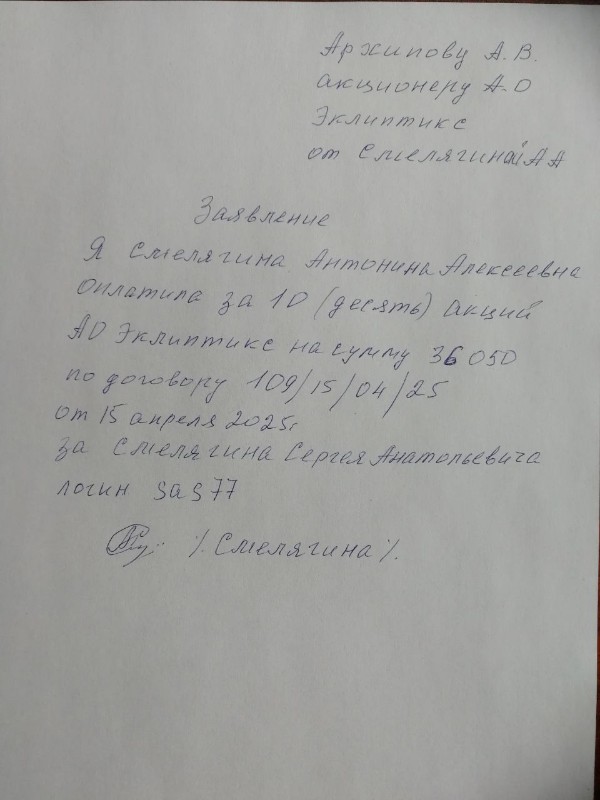 Архипову А.В.
акционеру АО
Эклиптикс
от Смелягиной АА
Заявление
Я Смелягина Антонина Алексеевна
оплатила за 10 (десять) акций
АО Эклиптикс на сумму 36 050
по договору 109/15/04/25
от 15 апреля 2025г
за Смелягина Сергея Анатольевича
логин sas77
/.Смелягина/.